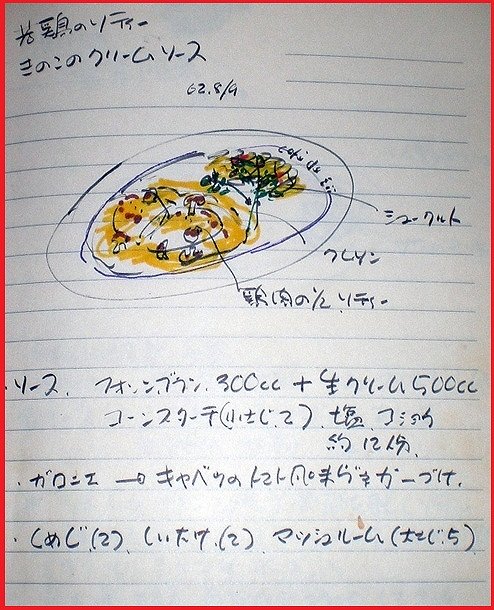 若鶏のソティー
きのこのクリームソース
62.8/9
café de
シュークルト
クレソン
鶏肉の1/2 ソティー
・ソース. フォンブラン 300cc + 生クリーム500cc
コーンスターチ(小さじ.2) 塩 コショウ
約12人分.
・ガロニエ → キャベツのトマト風味
・しめじ.(2) しいたけ.(2) マッシュルーム(大さじ.5)